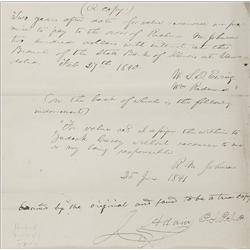 (A Copy)
Two years after date for value received we pro
mise to pay to the order of Richard M Johnson
two thousand dollars with interest at the
Branch of the State Bank of Illinois at
Feb 27th 1840.
W. L. D. Ewing
Wm
(on the back of which is the following
indorsement)
"For value recd I assign the within to
Zadock Casey without recourse to me
or my being responsible
R. M. Johnson
25 June 1841
by the original and found to be a true copy